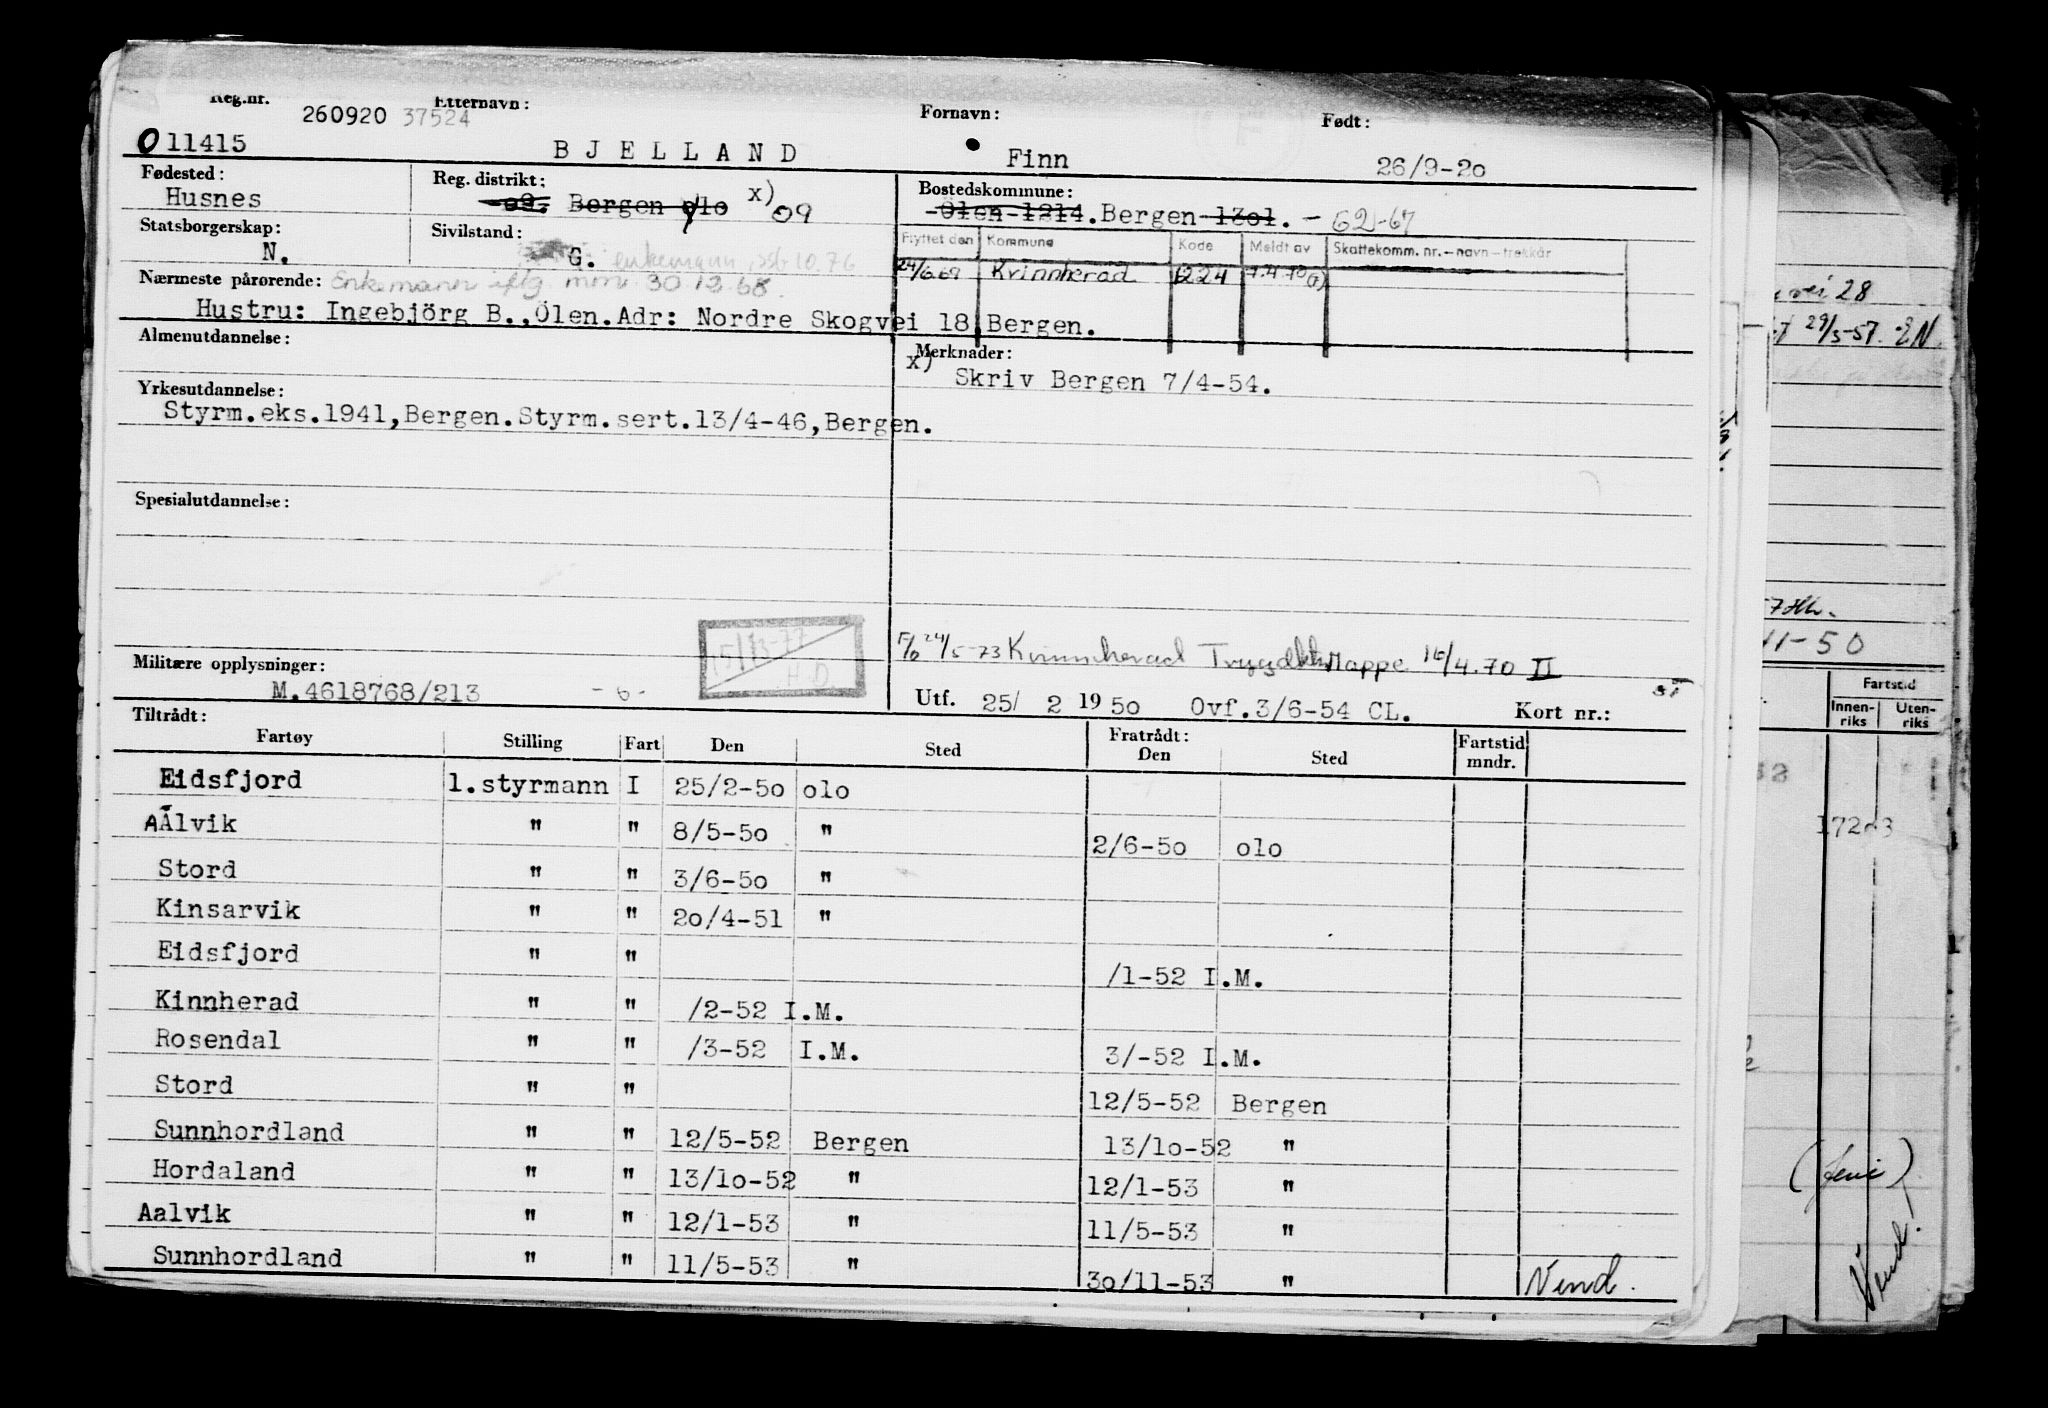 Reg.nr. 260920 37524 Etternavn: Fornavn: Født:
011415 BJELLAND Finn 26/9-20
Fødested: Reg. distrikt: Bostedskommune:
Husnes -09. Bergen olo x) 09 -Ølen-1214.Bergen-1301. - 62-67
Statsborgerskap: Sivilstand: Flyttet den Kommune Kode Meldt av Skattekomm. nr.-navn-trekkår
N. G. enkemann, 10.76 24/6.69 Kvinnherad 1224 7.4.70
Nærmeste pårørende: Enkemann iflg mm 30.12.68.
Hustru: Ingebjörg B.,Ölen.Adr: Nordre Skogvei 18 Bergen.
Almenutdannelse: Merknader:
x) Skriv Bergen 7/4-54.
Yrkesutdannelse:
Styrm.eks.1941,Bergen.Styrm.sert.13/4-46,Bergen.
Spesialutdannelse:
24/5-73 Kvinnherad Mappe 16/4.70 II
15/3-77
H.D.
Militære opplysninger:
M.4618768/213 -6- Utf. 25/ 2 1950 Ovf.3/6-54 CL. Kort nr.:
Tiltrådt: Fratrådt:
Fartøy Stilling Fart Den Sted Den Sted Fartstid mndr.
Eidsfjord 1.styrmann I 25/2-50 olo
AÅlvik " " 8/5-50 " 2/6-50 olo
Stord " " 3/6-50 "
Kinsarvik " " 20/4-51 "
Eidsfjord " " /1-52 I.M.
Kinnherad " " /2-52 I.M.
Rosendal " " /3-52 I.M. 3/-52 I.M.
Stord " " 12/5-52 Bergen
Sunnhordland " " 12/5-52 Bergen 13/10-52 "
Hordaland " " 13/10-52 " 12/1-53 "
Aalvik " " 12/1-53 " 11/5-53 "
Sunnhordland " " 11/5-53 " 30/11-53 "
Vend.
vei 28
29/3-57.
11-50
Fartstid
Innen-riks Uten-riks
Vend.